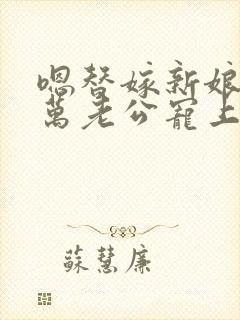 嗯替嫁新娘
萬老公寵上
蘇慧廉